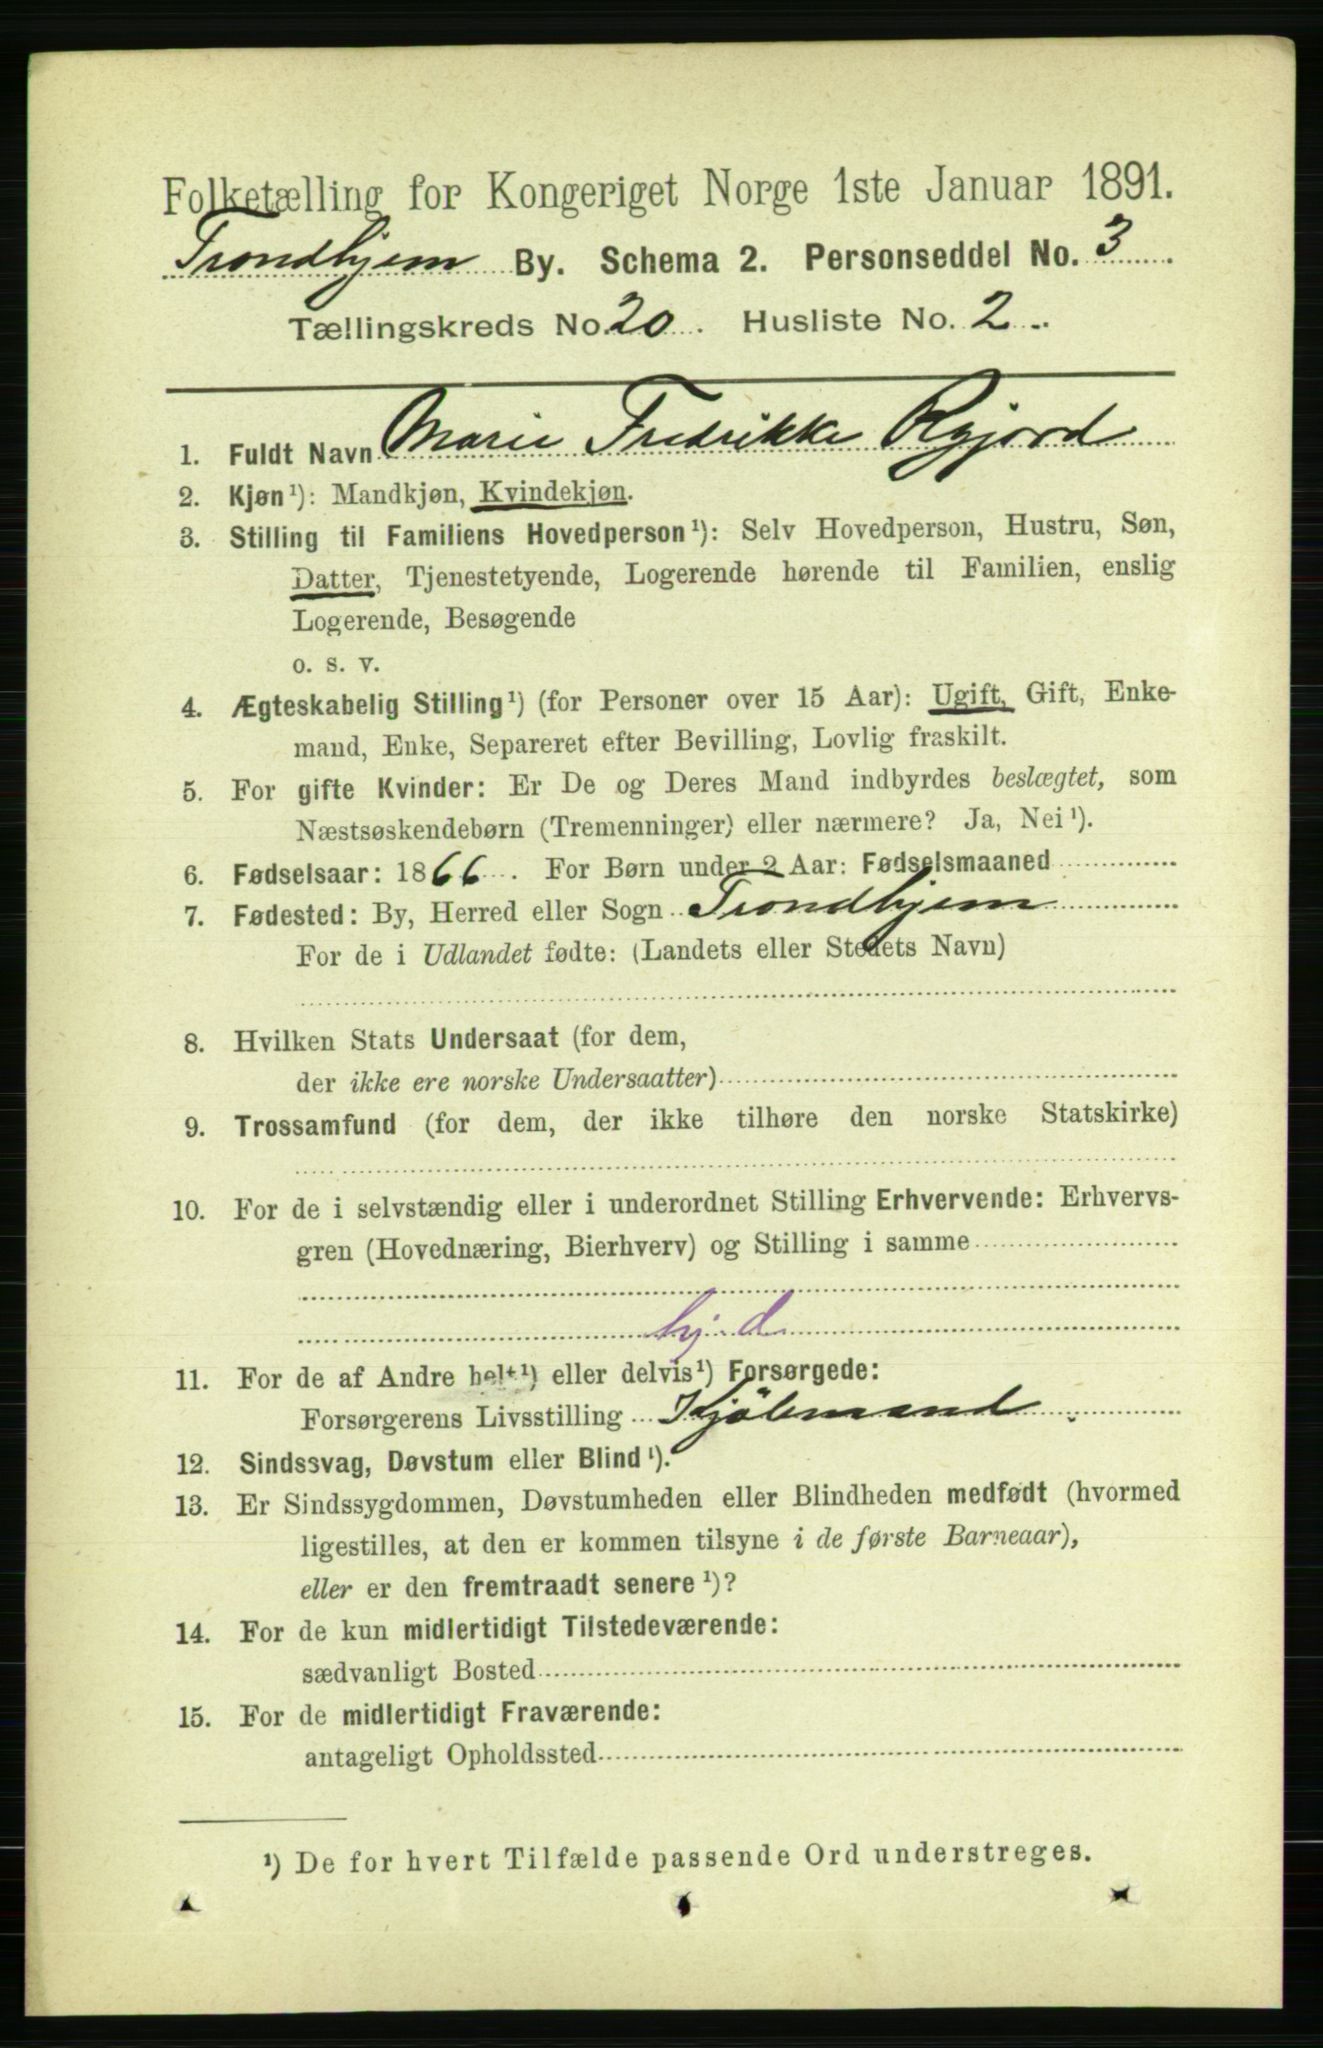 Folketælling for Kongeriget Norge 1ste Januar 1891.
Trondhjem By. Schema 2. Personseddel No. 3
Tællingskreds No. 20. Husliste No. 2.
1. Fuldt Navn Marie Fredrikke Rygjord
2. Kjøn¹): Mandkjøn, Kvindekjøn.
3. Stilling til Familiens Hovedperson¹): Selv Hovedperson, Hustru, Søn,
Datter, Tjenestetyende, Logerende hørende til Familien, enslig
Logerende, Besøgende
o. s. v.
4. Ægteskabelig Stilling¹) (for Personer over 15 Aar): Ugift, Gift, Enke-
mand, Enke, Separeret efter Bevilling, Lovlig fraskilt.
5. For gifte Kvinder: Er De og Deres Mand indbyrdes beslægtet, som
Næstsøskendebørn (Tremenninger) eller nærmere? Ja, Nei¹).
6. Fødselsaar: 1866. For Børn under 2 Aar: Fødselsmaaned
7. Fødested: By, Herred eller Sogn Trondhjem
For de i Udlandet fødte: (Landets eller Stedets Navn)
8. Hvilken Stats Undersaat (for dem,
der ikke ere norske Undersaatter)
9. Trossamfund (for dem, der ikke tilhøre den norske Statskirke)
10. For de i selvstændig eller i underordnet Stilling Erhvervende: Erhvervs-
gren (Hovednæring, Bierhverv) og Stilling i samme
hj. d
11. For de af Andre helt¹) eller delvis¹) Forsørgede:
Forsørgerens Livsstilling Kjöbmand
12. Sindssvag, Døvstum eller Blind¹).
13. Er Sindssygdommen, Døvstumheden eller Blindheden medfødt (hvormed
ligestilles, at den er kommen tilsyne i de første Barneaar),
eller er den fremtraadt senere¹)?
14. For de kun midlertidigt Tilstedeværende:
sædvanligt Bosted
15. For de midlertidigt Fraværende:
antageligt Opholdssted
¹) De for hvert Tilfælde passende Ord understreges.